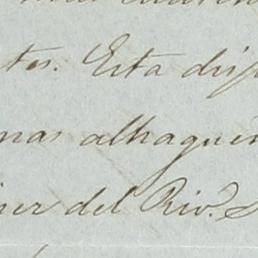 tes. Esta disp
nas alhagueñ
ner del Rio. S